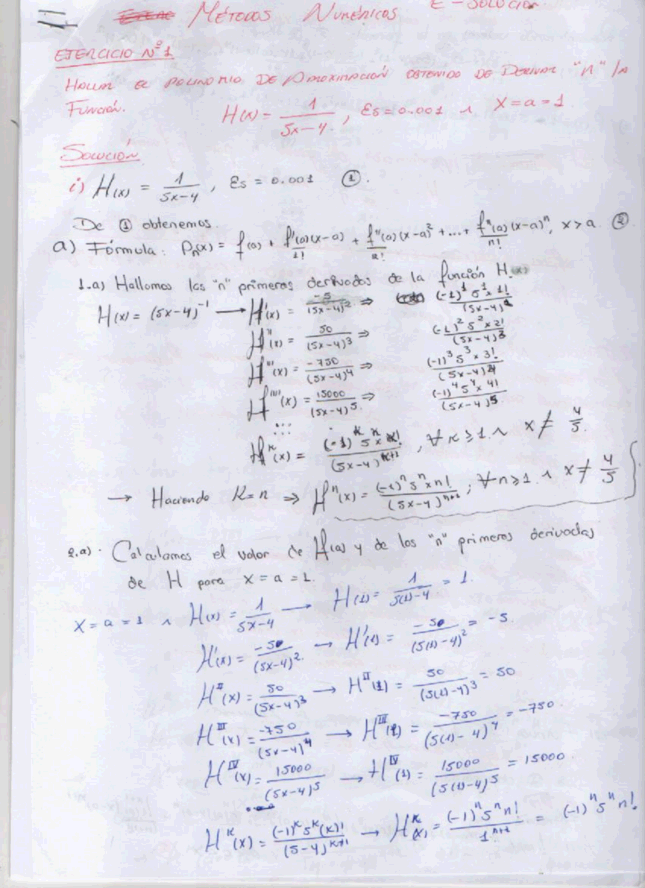 Métodos Numéricos E-Solución
EJERCICIO Nº 1
HALLAR EL POLINOMIO DE APROXIMACIÓN OBTENIDO DE DERIVAR "n" /a
FUNCIÓN. H(x) = 1/(5x-4), Es = 0.001 ∧ X = a = 1
SOLUCIÓN
i) H(x) = 1/(5x-4), Es = 0.001 ①.
De ① obtenemos
a) Fórmula: Pn(x) = f(a) + f'(a)(x-a)/1! + f''(a)(x-a)²/2! + ... + fⁿ(a)(x-a)ⁿ/n!, x>a ②
1.a) Hallamos las "n" primeras derivadas de la función H(x)
H(x) = (5x-4)⁻¹ → H'(x) = -5/(5x-4)² ⇒ (-1)¹5¹×1!/(5x-4)²
H''(x) = 50/(5x-4)³ ⇒ (-1)²5²×2!/(5x-4)³
H'''(x) = -750/(5x-4)⁴ ⇒ (-1)³5³×3!/(5x-4)⁴
H''''(x) = 15000/(5x-4)⁵ ⇒ (-1)⁴5⁴×4!/(5x-4)⁵
...
Hᴷ(x) = (-1)ᴷ5ᴷ×K!/(5x-4)ᴷ⁺¹, ∀K≥1 ∧ x ≠ 4/5
→ Haciendo K=n ⇒ Hⁿ(x) = (-1)ⁿ5ⁿ×n!/(5x-4)ⁿ⁺¹, ∀n≥1 ∧ x ≠ 4/5
2.a). Calculamos el valor de H(a) y de las "n" primeras derivadas
de H para x = a = 1.
X = a = 1 ∧ H(x) = 1/(5x-4) → H(1) = 1/(5(1)-4) = 1.
H'(x) = -5/(5x-4)² → H'(1) = -5/(5(1)-4)² = -5.
Hᴵᴵ(x) = 50/(5x-4)³ → Hᴵᴵ(1) = 50/(5(1)-4)³ = 50
Hᴵᴵᴵ(x) = -750/(5x-4)⁴ → Hᴵᴵᴵ(1) = -750/(5(1)-4)⁴ = -750.
Hᴵⱽ(x) = 15000/(5x-4)⁵ → Hᴵⱽ(1) = 15000/(5(1)-4)⁵ = 15000
Hᴷ(x) = (-1)ᴷ5ᴷ(K)!/(5-4)ᴷ⁺¹ → Hᴷ(x) = (-1)ⁿ5ⁿn!/1ⁿ⁺¹ = (-1)ⁿ5ⁿn!